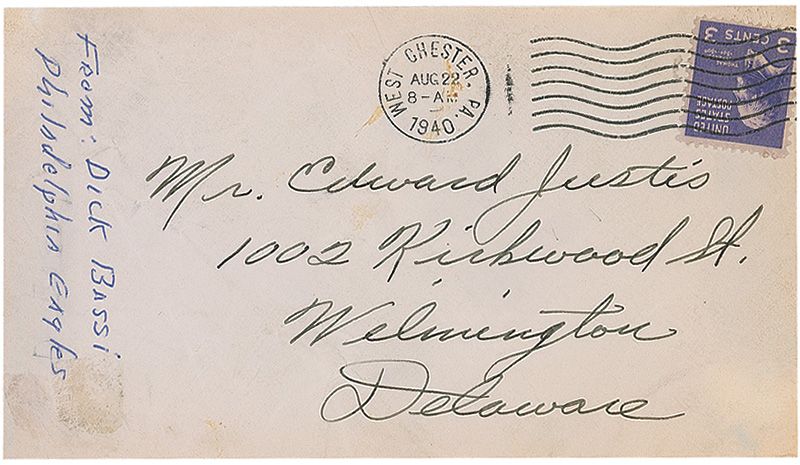 From: Dick Bassi
Philadelphia Eagles
WEST CHESTER. PA.
AUG 22
8-AM
1940
3 CENTS 3
UNITED
STATES
POSTAGE
Mr. Edward Justis
1002 Kirkwood St.
Wilmington
Delaware